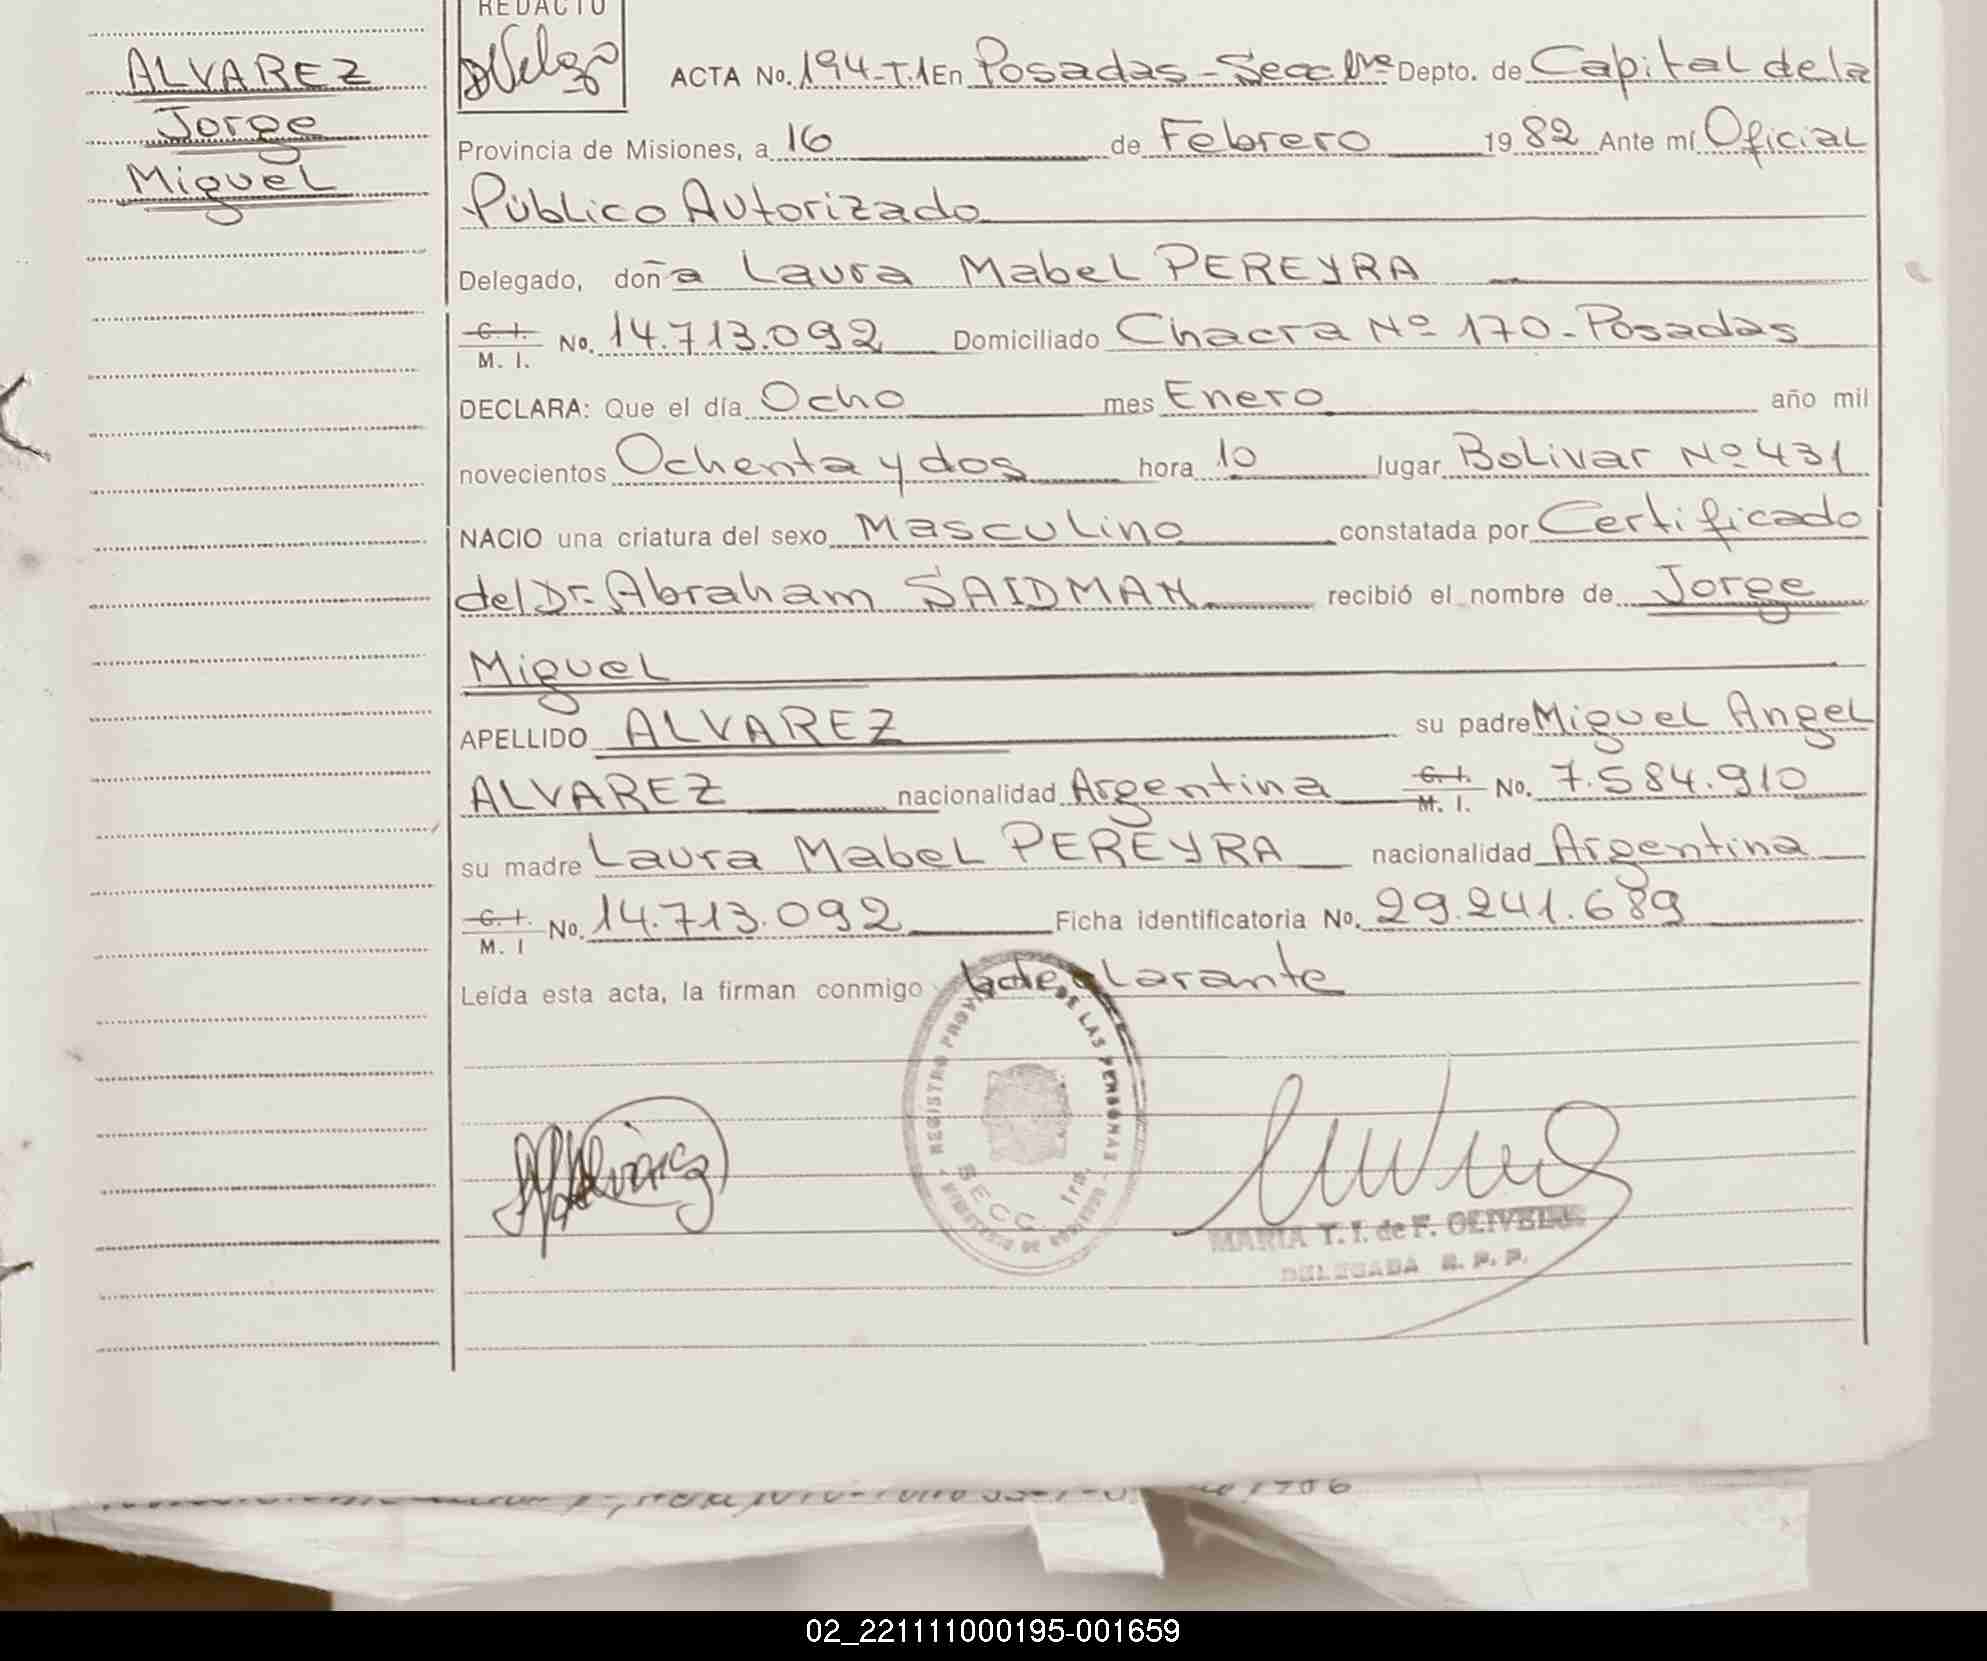 REDACTO
ALVAREZ
Jorge
Miguel
ACTA No. 194-T.1 En Posadas - Secc 1ra Depto. de Capital de la
Provincia de Misiones, a 16 de Febrero 1982 Ante mí Oficial
Público Autorizado
Delegado, doña Laura Mabel PEREYRA
C. I. M. I. No. 14.713.092 Domiciliado Chacra Nº 170 - Posadas
DECLARA: Que el día Ocho mes Enero año mil
novecientos Ochenta y dos hora 10 lugar Bolivar Nº 431
NACIO una criatura del sexo Masculino constatada por Certificado
del Dr. Abraham SAIDMAN recibió el nombre de Jorge
Miguel
APELLIDO ALVAREZ su padre Miguel Angel
ALVAREZ nacionalidad Argentina C. I. M. I. No. 7.584.910
su madre Laura Mabel PEREYRA nacionalidad Argentina
C. I. M. I No. 14.713.092 Ficha identificatoria No. 29.241.689
Leída esta acta, la firman conmigo la declarante
REGISTRO PROV. DE LAS PERSONAS
SECC. 1ra.
MINISTERIO DE GOBIERNO
MARIA T. I. de F. OLIVEIRA
DELEGADA R. P. P.
02_221111000195-001659